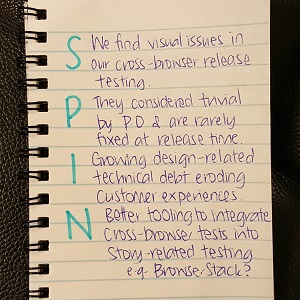 S We find visual issues in
our cross-browser release
testing.
P They considered trivial
by P.D & are rarely
fixed at release time.
I Growing design-related
technical debt eroding
customer experiences.
N Better tooling to integrate
cross-browser tests into
story-related testing.
e.g. Browser Stack?